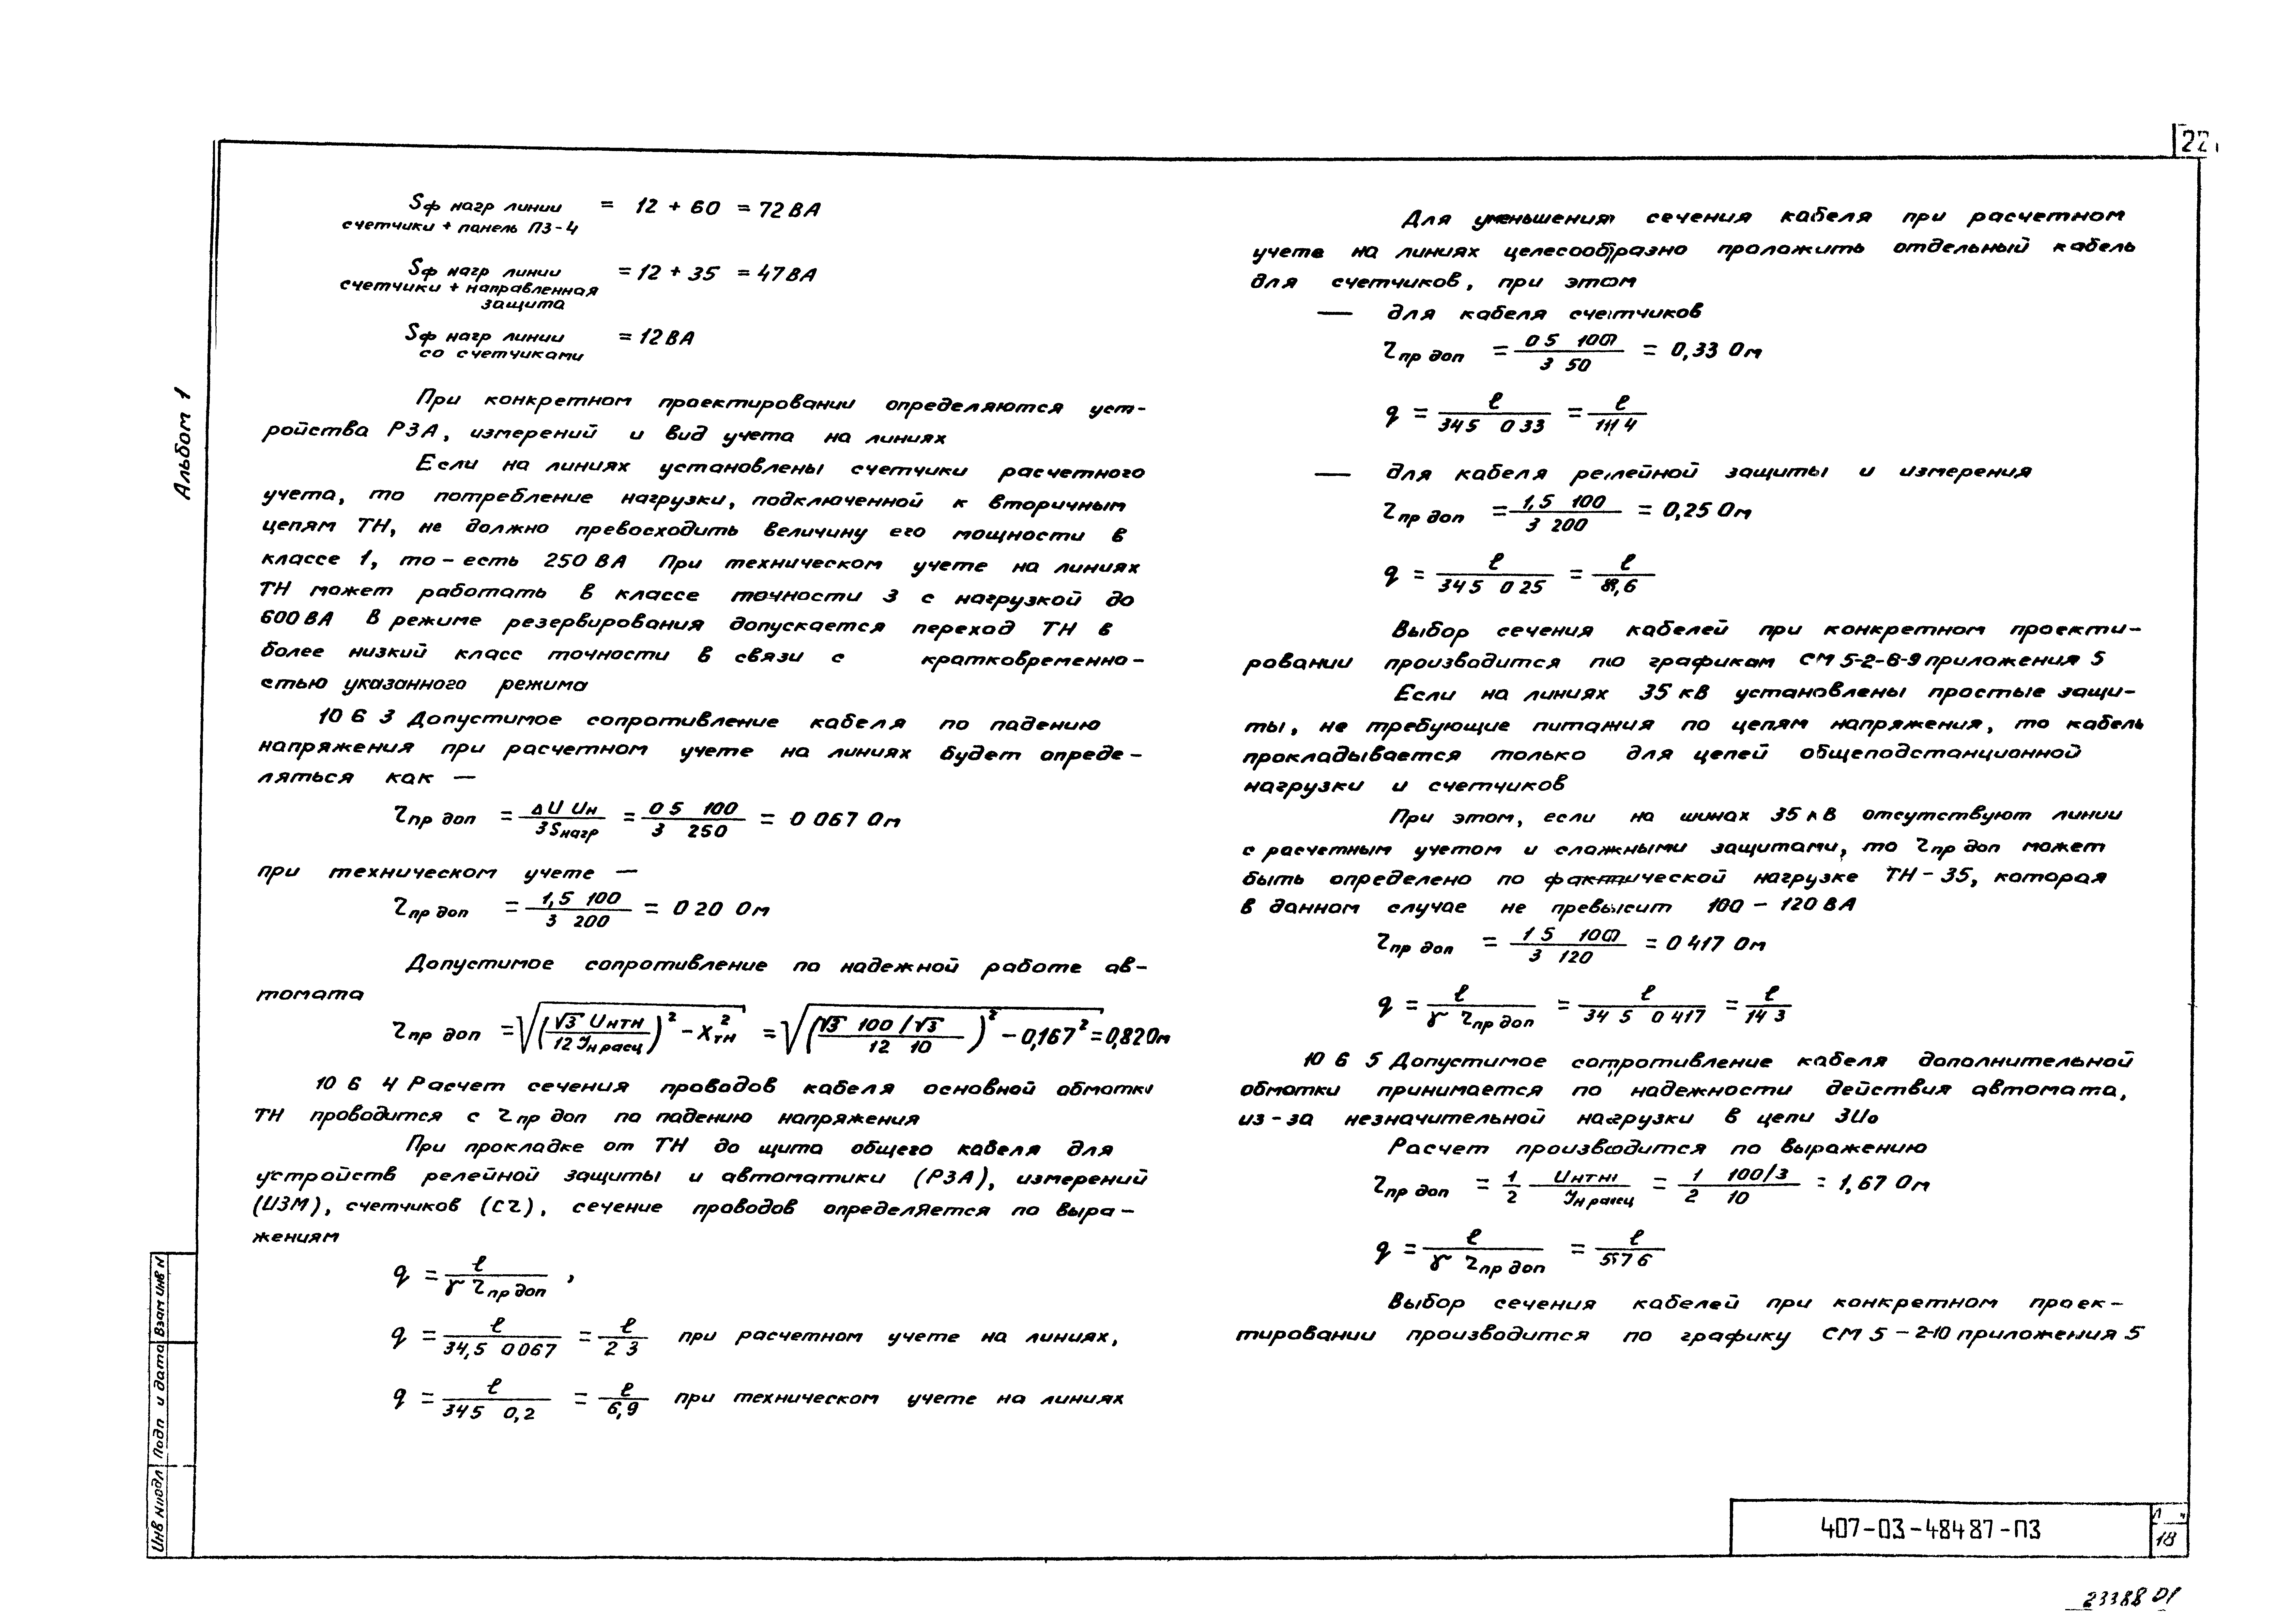 22
Sф нагр линии = 12 + 60 = 72 ВА
счетчики + панель ПЗ-4
Sф нагр линии = 12 + 35 = 47 ВА
счетчики + направленная
защита
Sф нагр линии = 12 ВА
со счетчиками
При конкретном проектировании определяются уст-
ройства РЗА, измерений и вид учета на линиях
Если на линиях установлены счетчики расчетного
учета, то потребление нагрузки, подключенной к вторичным
цепям ТН, не должно превосходить величину его мощности в
классе 1, то-есть 250 ВА При техническом учете на линиях
ТН может работать в классе точности 3 с нагрузкой до
600 ВА В режиме резервирования допускается переход ТН в
более низкий класс точности в связи с кратковременно-
стью указанного режима
10 6 3 Допустимое сопротивление кабеля по падению
напряжения при расчетном учете на линиях будет опреде-
ляться как —
τпр доп = ΔU Uн / 3Sнагр = 0 5 100 / 3 250 = 0 067 Ом
при техническом учете —
τпр доп = 1,5 100 / 3 200 = 0 20 Ом
Допустимое сопротивление по надежной работе ав-
томата
τпр доп = √(√3 Uнтн / 12 Iн расц)² - Xтн² = √(√3 100/√3 / 12 10)² - 0,167² = 0,82 Ом
10 6 4 Расчет сечения проводов кабеля основной обмотки
ТН проводится с τпр доп по падению напряжения
При прокладке от ТН до щита общего кабеля для
устройств релейной защиты и автоматики (РЗА), измерений
(ИЗМ), счетчиков (СЧ), сечение проводов определяется по выра-
жениям
q = ℓ / γ τпр доп ,
q = ℓ / 34,5 0 067 = ℓ / 2 3 при расчетном учете на линиях,
q = ℓ / 34 5 0,2 = ℓ / 6,9 при техническом учете на линиях
Для уменьшения сечения кабеля при расчетном
учете на линиях целесообразно проложить отдельный кабель
для счетчиков, при этом
— для кабеля счетчиков
τпр доп = 0 5 100 / 3 50 = 0,33 Ом
q = ℓ / 34 5 0 33 = ℓ / 11 4
— для кабеля релейной защиты и измерения
τпр доп = 1,5 100 / 3 200 = 0,25 Ом
q = ℓ / 34 5 0 25 = ℓ / 8,6
Выбор сечения кабелей при конкретном проекти-
ровании производится по графикам СМ 5-2-6-9 приложения 5
Если на линиях 35 кВ установлены простые защи-
ты, не требующие питания по цепям напряжения, то кабель
прокладывается только для цепей общеподстанционной
нагрузки и счетчиков
При этом, если на шинах 35 кВ отсутствуют линии
с расчетным учетом и сложными защитами, то τпр доп может
быть определено по фактической нагрузке ТН-35, которая
в данном случае не превысит 100 - 120 ВА
τпр доп = 1 5 100 / 3 120 = 0 417 Ом
q = ℓ / γ τпр доп = ℓ / 34 5 0 417 = ℓ / 14 3
10 6 5 Допустимое сопротивление кабеля дополнительной
обмотки принимается по надежности действия автомата,
из-за незначительной нагрузки в цепи 3U₀
Расчет производится по выражению
τпр доп = 1/2 Uнтн / Iн расц = 1 100/3 / 2 10 = 1,67 Ом
q = ℓ / γ τпр доп = ℓ / 57 6
Выбор сечения кабелей при конкретном проек-
тировании производится по графику СМ 5-2-10 приложения 5
Альбом 1
Инв № подл Подп и дата Взам инв №
407-03-484 87-ПЗ
18
23388 01